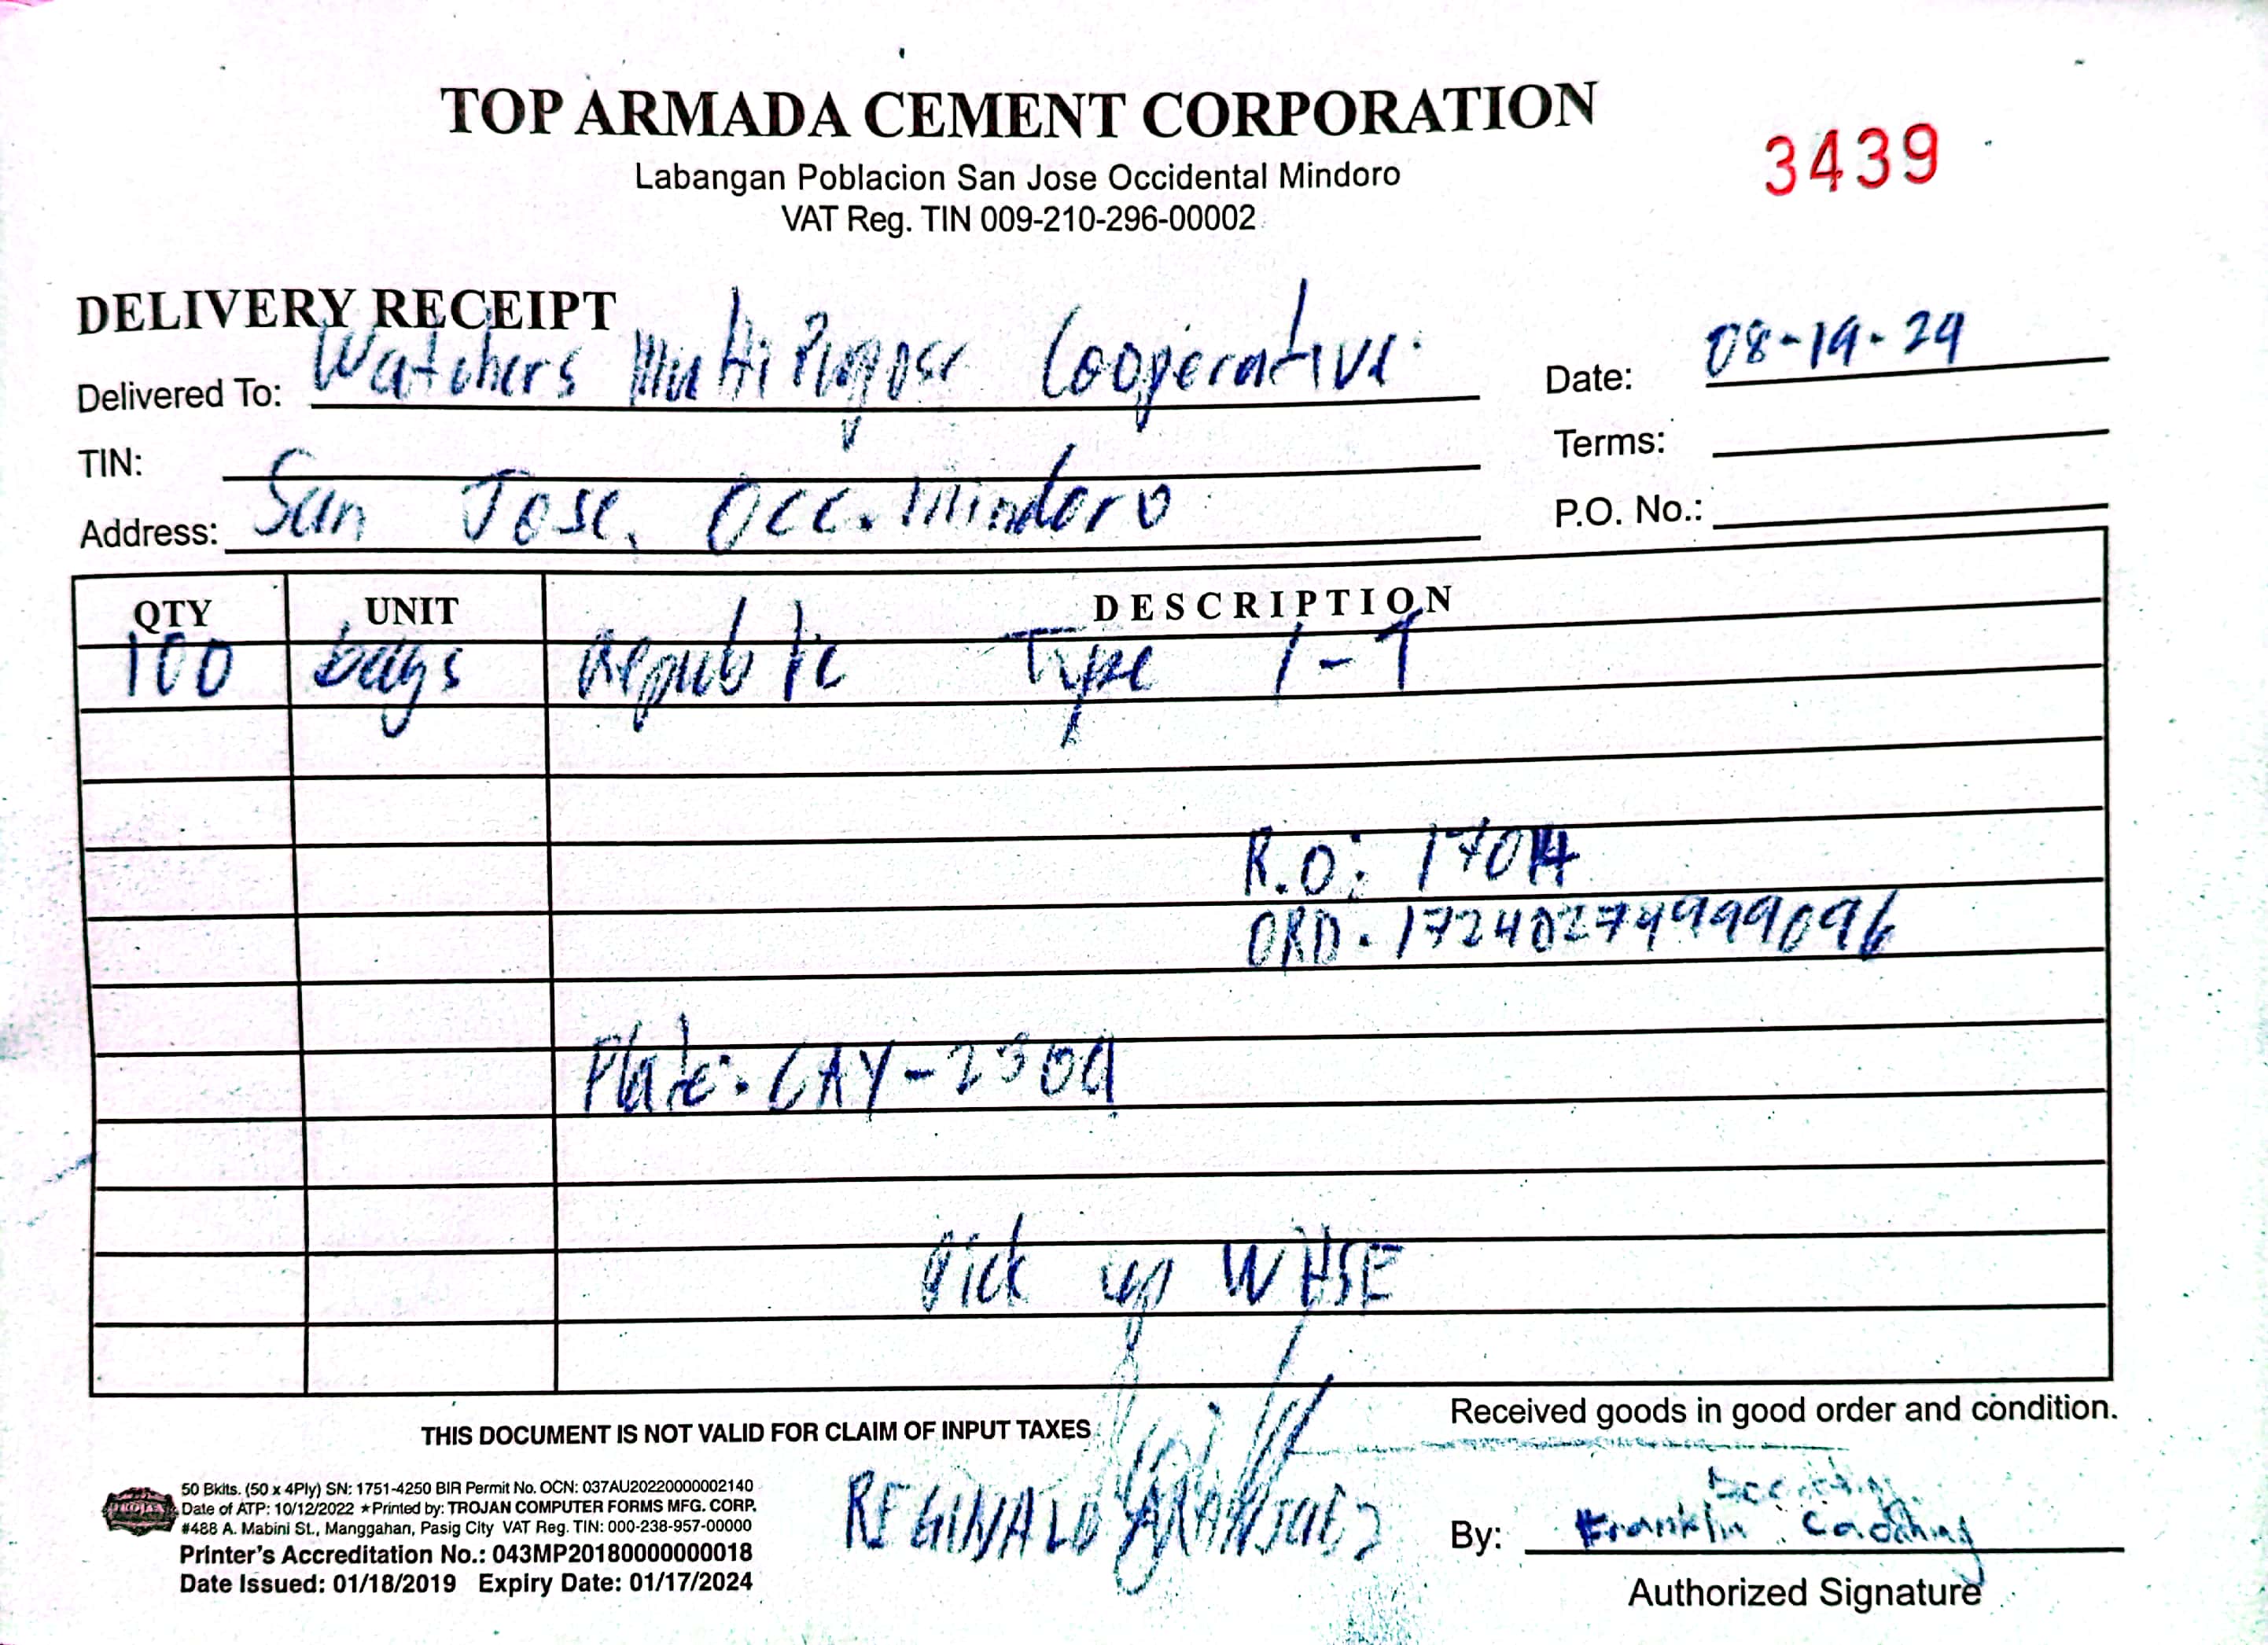 TOP ARMADA CEMENT CORPORATION
3439
Labangan Poblacion San Jose Occidental Mindoro
VAT Reg. TIN 009-210-296-00002
DELIVERY RECEIPT
Delivered To: Watchers Multi Purpose Cooperative
Date: 08-19-24
TIN:
Terms:
Address: San Jose, Occ. Mindoro
P.O. No.:
QTY UNIT DESCRIPTION
100 bags Republic Type 1-T
R.O:
ORD. 17240274999096
Plate: CAY-2309
Pick up WHSE
THIS DOCUMENT IS NOT VALID FOR CLAIM OF INPUT TAXES
Received goods in good order and condition.
50 Bklts. (50 x 4Ply) SN: 1751-4250 BIR Permit No. OCN: 037AU20220000002140
Date of ATP: 10/12/2022 ★Printed by: TROJAN COMPUTER FORMS MFG. CORP.
#488 A. Mabini St., Manggahan, Pasig City VAT Reg. TIN: 000-238-957-00000
Printer's Accreditation No.: 043MP20180000000018
Date Issued: 01/18/2019 Expiry Date: 01/17/2024
REGINALD
By: Franklin
Authorized Signature